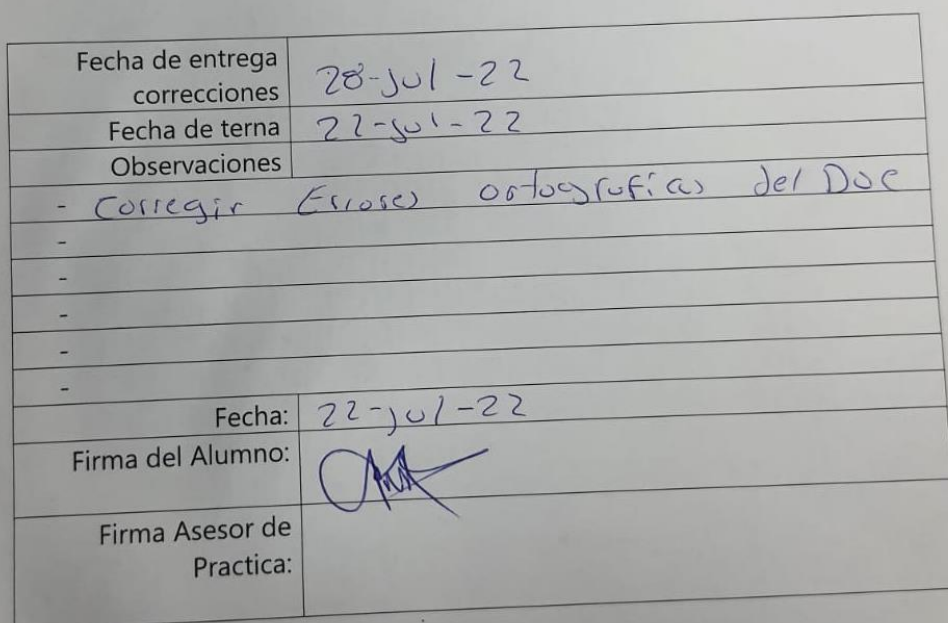 Fecha de entrega
correcciones 28-jul-22
Fecha de terna 22-jul-22
Observaciones
- Corregir Errores ortografícas del Doc
-
-
-
-
-
Fecha: 22-jul-22
Firma del Alumno:
Firma Asesor de
Practica: